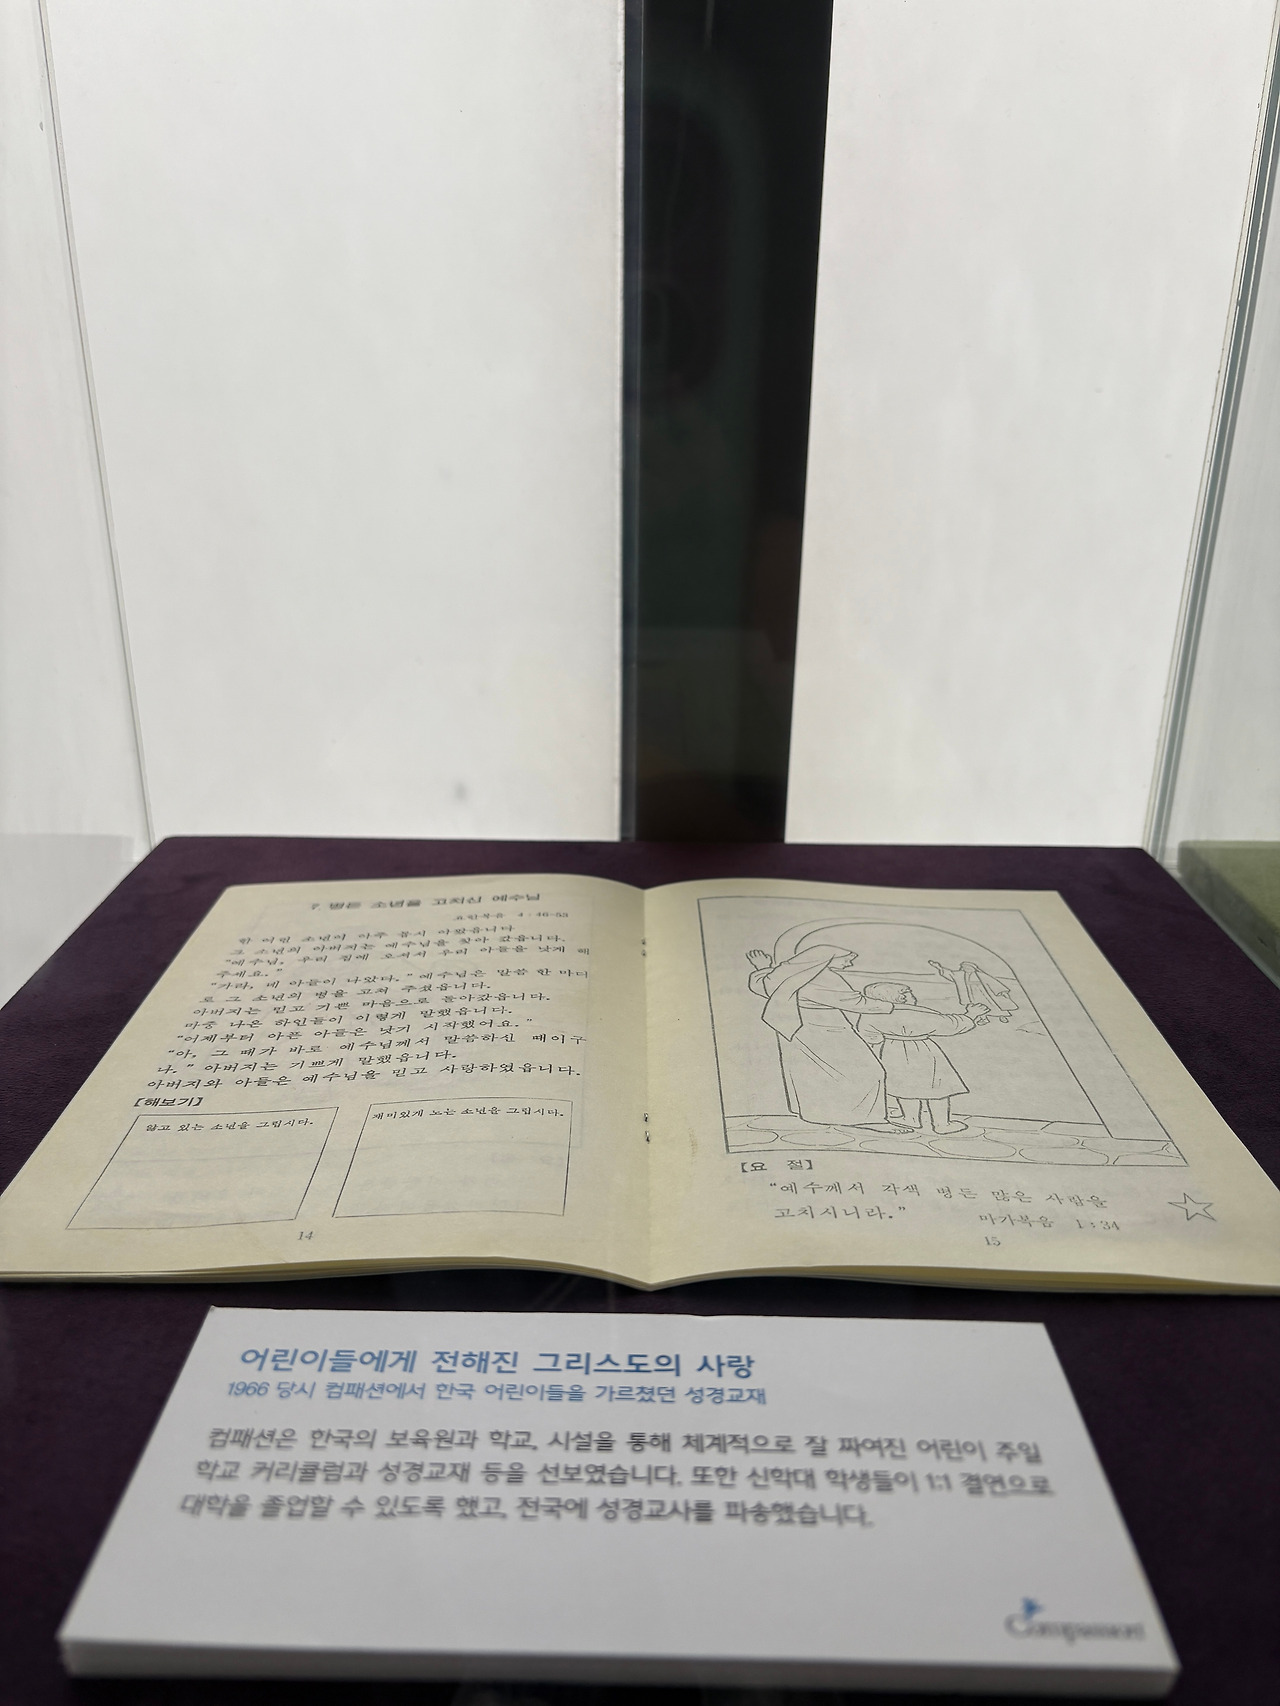 7 병든 소년을 고치신 예수님
요한복음 4:46-53
한 어린 소년이 아주 몹시 아팠읍니다
그 소년의 아버지는 예수님을 찾아 갔읍니다.
"예수님, 우리 집에 오셔서 우리 아들을 낫게 해
주세요."
"가라, 네 아들이 나았다." 예수님은 말씀 한 마디
로 그 소년의 병을 고쳐 주셨읍니다.
아버지는 믿고 기쁜 마음으로 돌아갔읍니다.
마중 나온 하인들이 이렇게 말했읍니다.
"어제부터 아픈 아들은 낫기 시작했어요."
"아, 그 때가 바로 예수님께서 말씀하신 때이구
나." 아버지는 기쁘게 말했읍니다.
아버지와 아들은 예수님을 믿고 사랑하였읍니다.
【해보기】
앓고 있는 소년을 그립시다.
재미있게 노는 소년을 그립시다.
14
【요 절】
"예수께서 각색 병든 많은 사람을
고치시니라."
마가복음 1:34
15
어린이들에게 전해진 그리스도의 사랑
1966 당시 컴패션에서 한국 어린이들을 가르쳤던 성경교재
컴패션은 한국의 보육원과 학교, 시설을 통해 체계적으로 잘 짜여진 어린이 주일
학교 커리큘럼과 성경교재 등을 선보였습니다. 또한 신학대 학생들이 1:1 결연으로
대학을 졸업할 수 있도록 했고, 전국에 성경교사를 파송했습니다.
Compassion